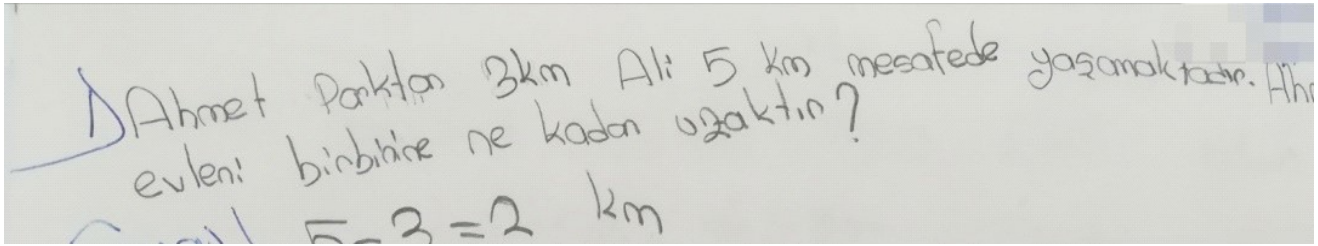 1) Ahmet Parktan 3km Ali 5 km mesafede yaşamaktadır.
evleri birbirine ne kadar uzaktır?
5-3=2 km